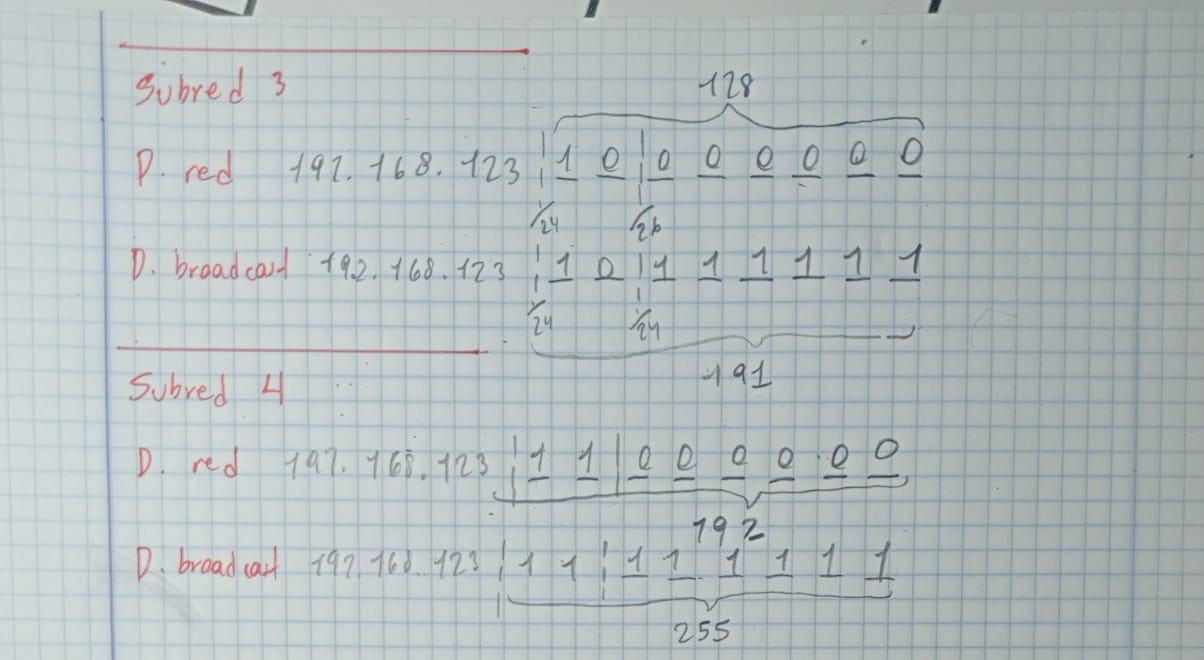 Subred 3
128
D. red 192.168.123 1 0 0 0 0 0 0 0
/24 /26
D. broadcast 192.168.123 1 0 1 1 1 1 1 1
/24 /24
191
Subred 4
D. red 192.168.123 1 1 0 0 0 0 0 0
192
D. broadcast 192.168.123 1 1 1 1 1 1 1 1
255